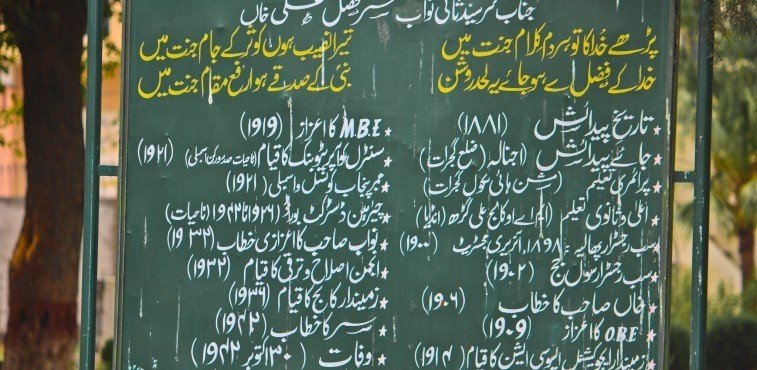 جناب سرسید ثانی نواب سر فضل علی خاں
پڑھے خدا کا تو ہر دم کلام جنت میں
تیرا نصیب ہوں کوثر کے جام جنت میں
خدا کے فضل سے ہو جائے یہ لحد روشن
نبی کے صدقے ہو ارفع مقام جنت میں
٭ تاریخ پیدائش (۱۸۸۱)
٭ جائے پیدائش اجنالہ (ضلع گجرات)
٭ پرائمری تعلیم (مشن ہائی سکول گجرات)
٭ اعلیٰ و ثانوی تعلیم (ایم اے او کالج علی گڑھ (انڈیا)
٭ سب رجسٹرار پھالیہ : ۱۸۹۸، آنریری مجسٹریٹ (۱۹۰۰)
٭ سب رجسٹرار سول جج (۱۹۰۲)
٭ خاں صاحب کا خطاب (۱۹۰۶)
٭ OBE کا اعزاز (۱۹۰۹)
٭ زمیندار ایجوکیشنل ایسوسی ایشن کا قیام (۱۹۱۴)
٭ M.B.E کا اعزاز (۱۹۱۹)
٭ سنٹرل کوآپریٹو بنک کا قیام (تاحیات صدور کن اسمبلی) (۱۹۲۱)
٭ ممبر پنجاب کونسل و اسمبلی (۱۹۲۱)
٭ چیئرمین ڈسٹرکٹ بورڈ (۱۹۲۶ تا ۱۹۴۲) (تاحیات)
٭ نواب صاحب کا اعزازی خطاب (۱۹۳۲)
٭ انجمن اصلاح و ترقی کا قیام (۱۹۳۲)
٭ زمیندار کالج کا قیام (۱۹۳۶)
٭ سر کا خطاب (۱۹۴۲)
٭ وفات (۳۰ اکتوبر ۱۹۴۲)